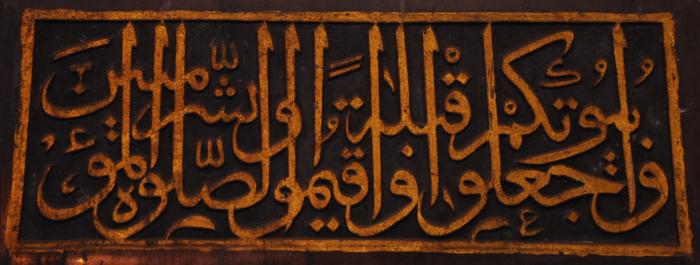 واجعلوا بيوتكم قبلة واقيموا الصلوة وبشر المؤمنين